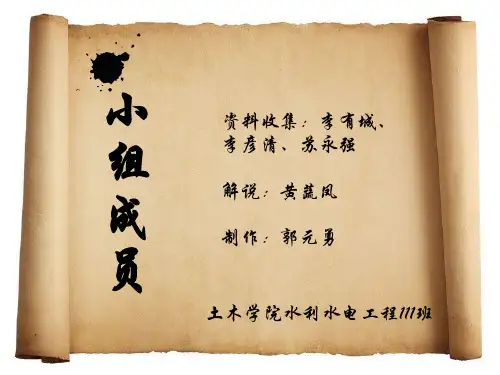 小组成员
资料收集：李有城、
李彦清、苏永强
解说：黄蕋凤
制作：郭元勇
土木学院水利水电工程111班